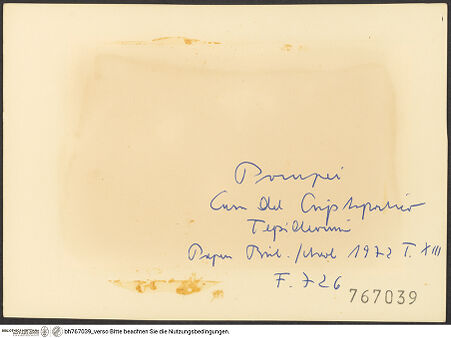 Pompei
Casa del Criptoportico
Tepidarium
Papers Brit. School 1972 T. XIII
F. 726
767039
bh767039_verso Bitte beachten Sie die Nutzungsbedingungen.